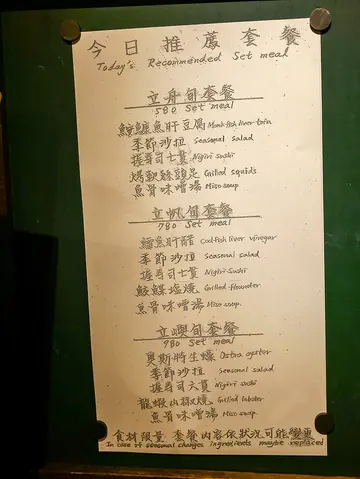 今日推薦套餐
Today's Recommended Set meal
立舟旬套餐
580 Set meal
鮟鱇魚肝豆腐 Monkfish liver tofu
季節沙拉 Seasonal salad
握壽司七貫 Nigiri sushi
爆軟絲頭足 Grilled squids
魚骨味噌湯 Miso soup
立帆旬套餐
780 Set meal
鱈魚肝醋 Codfish liver vinegar
季節沙拉 Seasonal salad
握壽司七貫 Nigiri Sushi
鮫鰈塩燒 Grilled flounder
魚骨味噌湯 Miso soup.
立嶼旬套餐
980 Set meal
奧斯特生蠔 Ostra oyster
季節沙拉 Seasonal salad
握壽司六貫 Nigiri sushi
龍蝦山椒燒 Grilled lobster
魚骨味噌湯 Miso soup.
食材限量 套餐內容依狀況可能變更
In case of seasonal changes ingredients maybe replaced